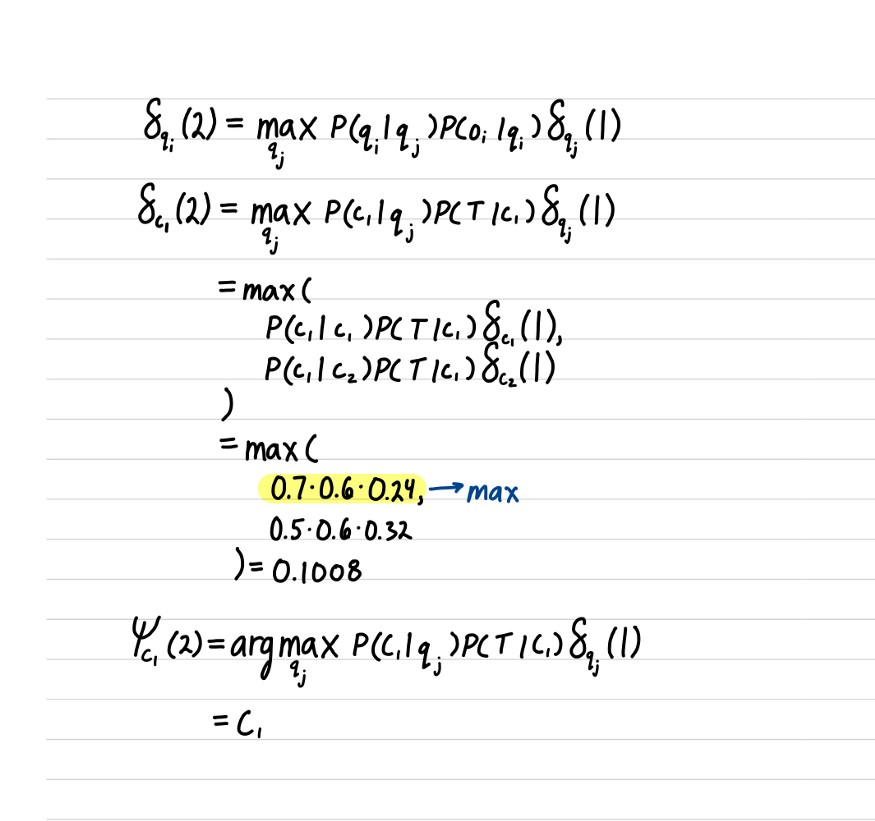 δ_{q_i}(2) = max_{q_j} P(q_i|q_j)P(o_i|q_i)δ_{q_j}(1)
δ_{c_1}(2) = max_{q_j} P(c_1|q_j)P(T|c_1)δ_{q_j}(1)
= max(
P(c_1|c_1)P(T|c_1)δ_{c_1}(1),
P(c_1|c_2)P(T|c_1)δ_{c_2}(1)
)
= max(
0.7·0.6·0.24, → max
0.5·0.6·0.32
) = 0.1008
Ψ_{c_1}(2) = argmax_{q_j} P(C_1|q_j)P(T|C_1)δ_{q_j}(1)
= C_1